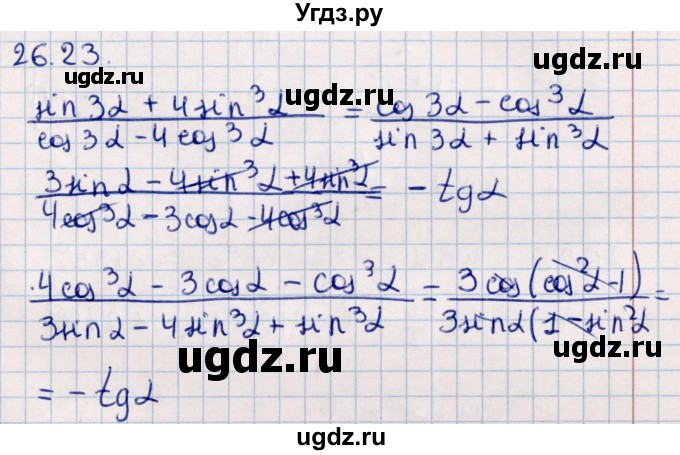 Угдз.ру
26.23.
ugdz.ru ugdz.ru
ugdz.ru
(sin3α + 4sin³α)/(cos3α - 4cos³α) = (cos3α - cos³α)/(sin3α + sin³α)
ugdz.ru ugdz.ru
(3sinα - 4sin³α + 4sin³α)/(4cos³α - 3cosα - 4cos³α) = - tgα
ugdz.ru
(4cos³α - 3cosα - cos³α)/(3sinα - 4sin³α + sin³α) = (3cos(cos²α - 1))/(3sinα(1 - sin²α) =
ugdz.ru ugdz.ru
= - tgα
ugdz.ru
ugdz.ru